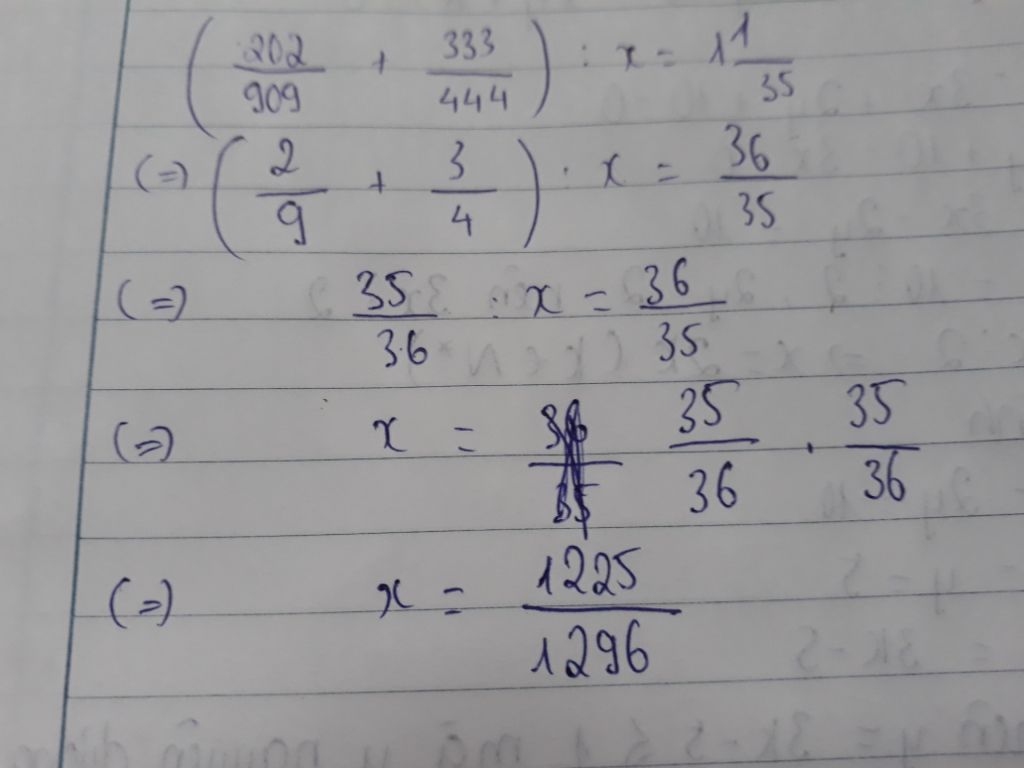 (202/909 + 333/444) : x = 1 1/35
(=) (2/9 + 3/4) : x = 36/35
(=) 35/36 : x = 36/35
(=) x = 35/36 . 35/36
(=) x = 1225/1296